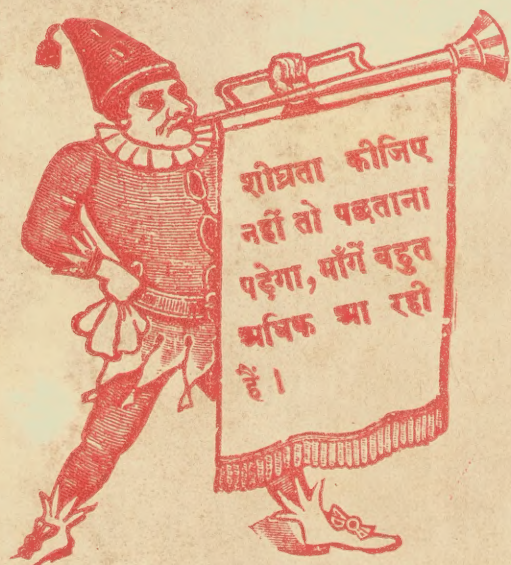 शीघ्रता कीजिए
नहीं तो पछताना
पड़ेगा, माँगें बहुत
अधिक आ रही
हैं।